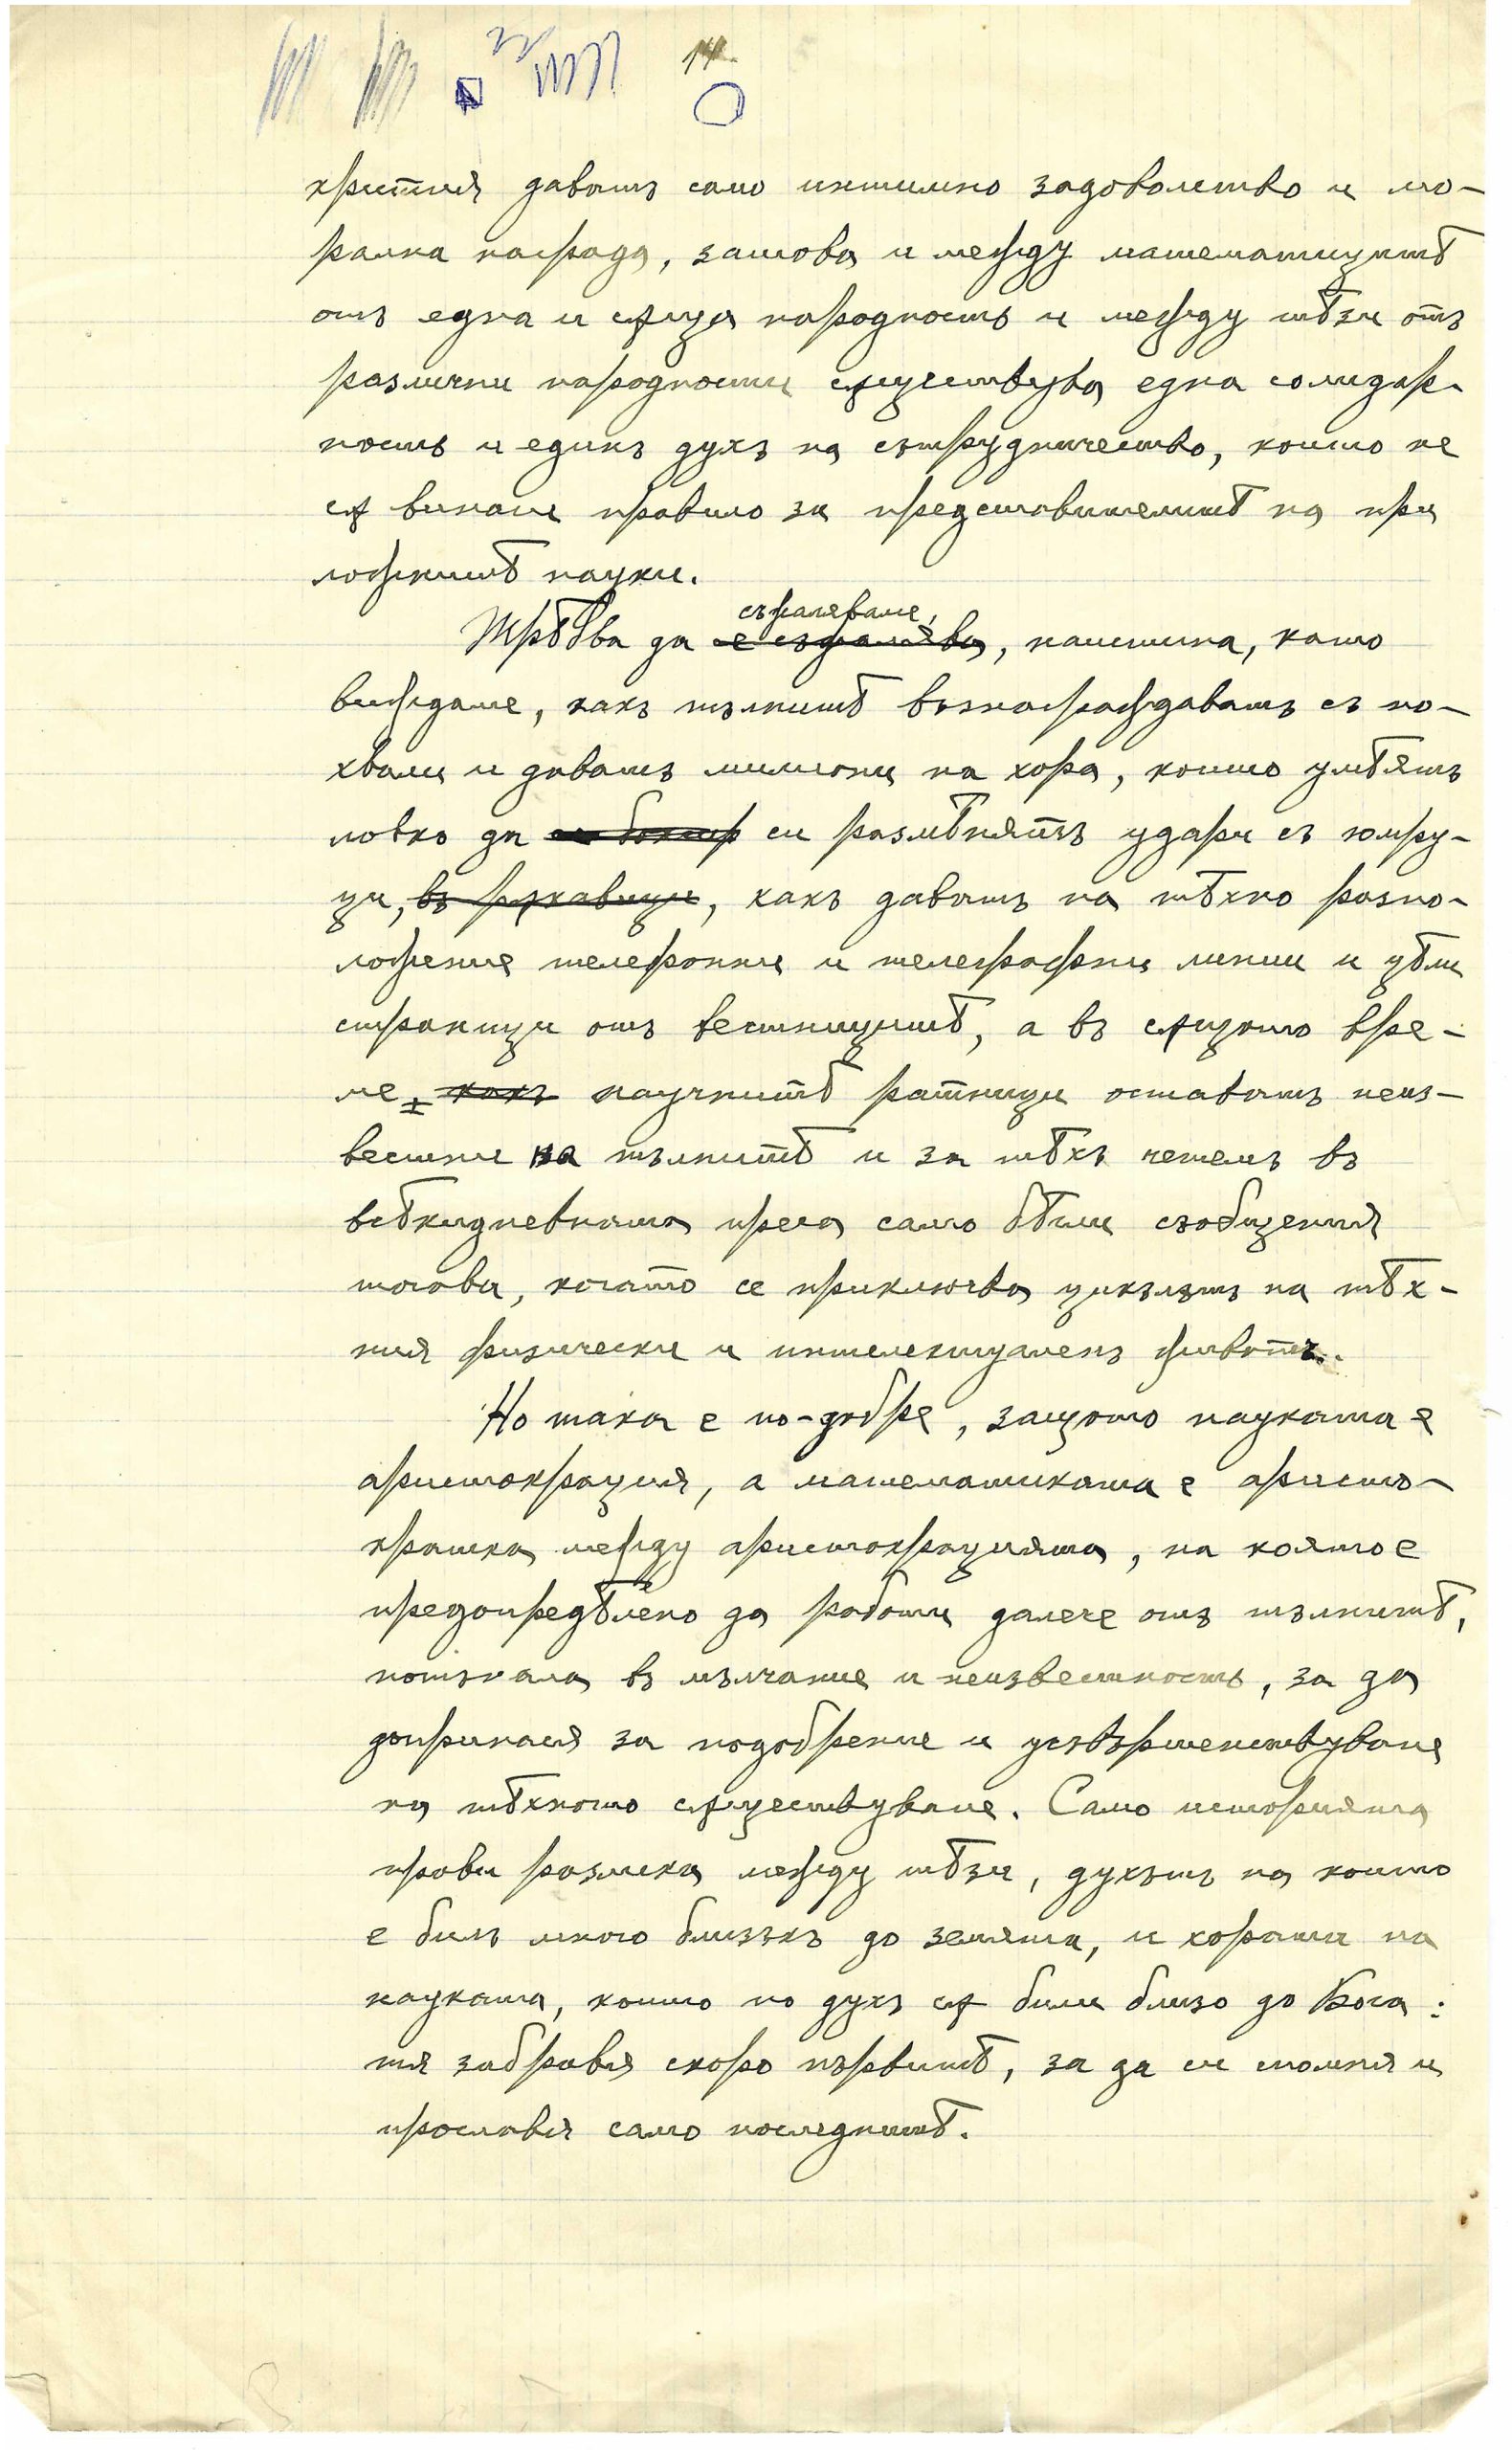 14.
крития даватъ само интимно задоволство и мо-
рална награда, затова и между математицитѣ
отъ една и сѫща народность и между тѣзи отъ
различни народности сѫществува една солидар-
ность и единъ духъ на сътрудничество, които не
сѫ винаги правило за представителитѣ на при
ложнитѣ науки.
съжаляваме,
Трѣбва да е съжалява, наистина, като
виждаме, какъ тълпитѣ възнаграждаватъ съ по-
хвали и даватъ милиони на хора, които умѣятъ
ловко да си размѣнятъ удари съ юмру-
ци, въ рѫкавици, какъ даватъ на тѣхно разпо-
ложение телефонни и телеграфни линии и цѣли
страници отъ вестницитѣ, а въ сѫщото вре-
ме, какъ научнитѣ ратници оставатъ неиз-
вестни на тълпитѣ и за тѣхъ четемъ въ
всѣкидневната преса само бѣгли съобщения
тогова, когато се приключва цикълътъ на тѣх-
ния физически и интелектуаленъ животъ.
Но така е по-добре, защото науката е
аристокрация, а математиката е аристо-
кратка между аристокрацията, на която е
предопредѣлено да работи далече отъ тълпитѣ,
потънала въ мълчание и неизвестность, за да
допринася за подобрение и усъвършенствуване
на тѣхното сѫществуване. Само историята
прави разлика между тѣзи, духътъ на които
е билъ много близъкъ до земята, и хората на
науката, които по духъ сѫ били близо до Бога:
тя забравя скоро първитѣ, за да си спомня и
прославя само последнитѣ.